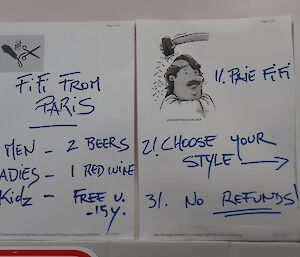 FiFi FROM
PARIS
MEN - 2 BEERS
ADIES - 1 RED WINE
Kidz - FREE U.
-15y.
1/. PAIE FiFi
2/. CHOOSE YOUR
STYLE
3/. NO REFUNDS!